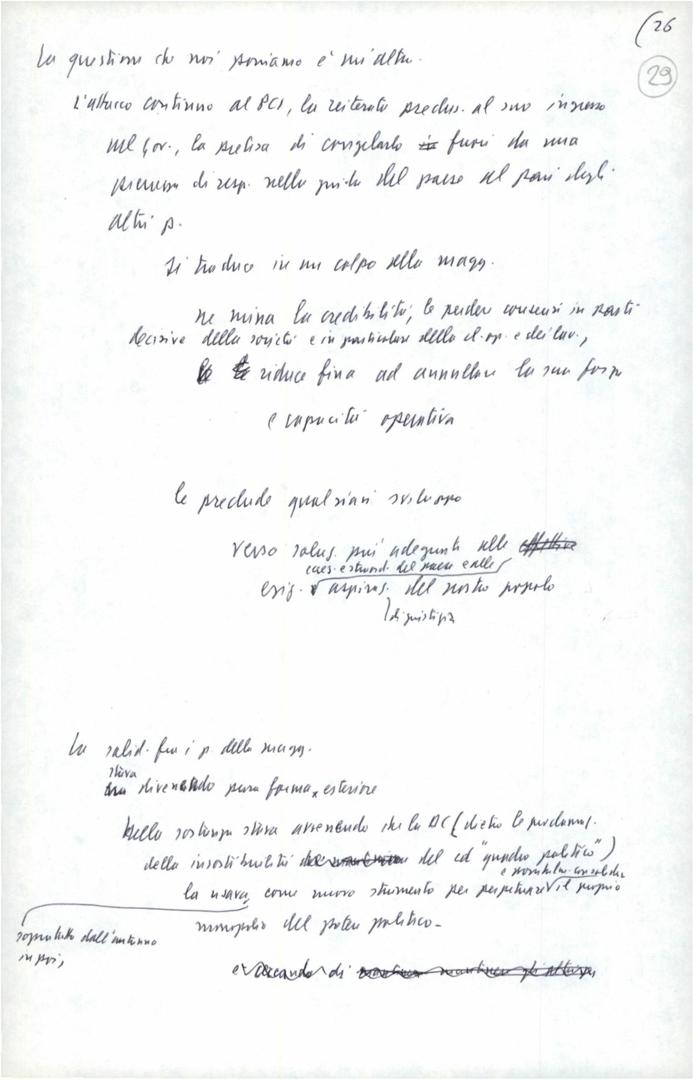 (26
29
La questione che noi poniamo è un'altra.
L'attacco continuo al PCI, la reiterata preclus. al suo ingresso
nel gov., la pretesa di congelarlo fuori da una
pienezza di resp. nella guida del paese al pari degli
altri p.
Si traduce in un colpo alla magg.
ne mina la credibilità, le perdere consensi in parti
decisive della società e in particolare della cl. op. e dei lav.,
riduce fino ad annullare la sua forza
e capacità operativa
le preclude qualsiasi sviluppo
verso soluz. più adeguate alle
del paese e alle
esig. aspiraz. del nostro popolo
di giustizia
La solid. fra i p. della magg.
stava
divenendo pura forma, esteriore
Nella sostanza stava avvenendo che la DC (dietro le proclamaz.
della insostituibilità del cd "quadro politico")
la usava, come nuovo strumento per perpetuare il proprio
monopolio del potere politico -
soprattutto dall'autunno
in poi,
cercando di